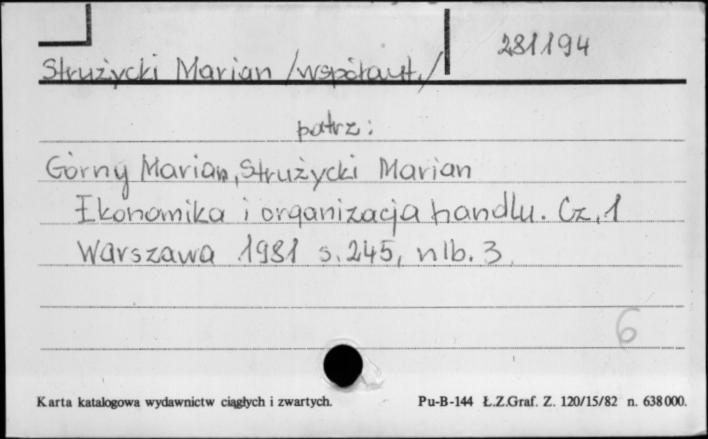 281194
Strużycki Marian /współaut./
patrz:
Górny Marian, Strużycki Marian
Ekonomika i organizacja handlu. Cz. 1
Warszawa 1981 s. 245, nlb. 3
6
Karta katalogowa wydawnictw ciągłych i zwartych. Pu-B-144 Ł.Z.Graf. Z. 120/15/82 n. 638000.